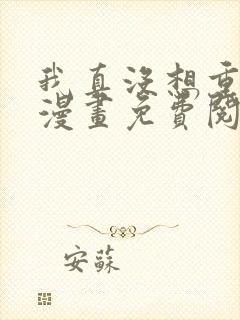 我真沒想重
漫畫免費閱
安蘇